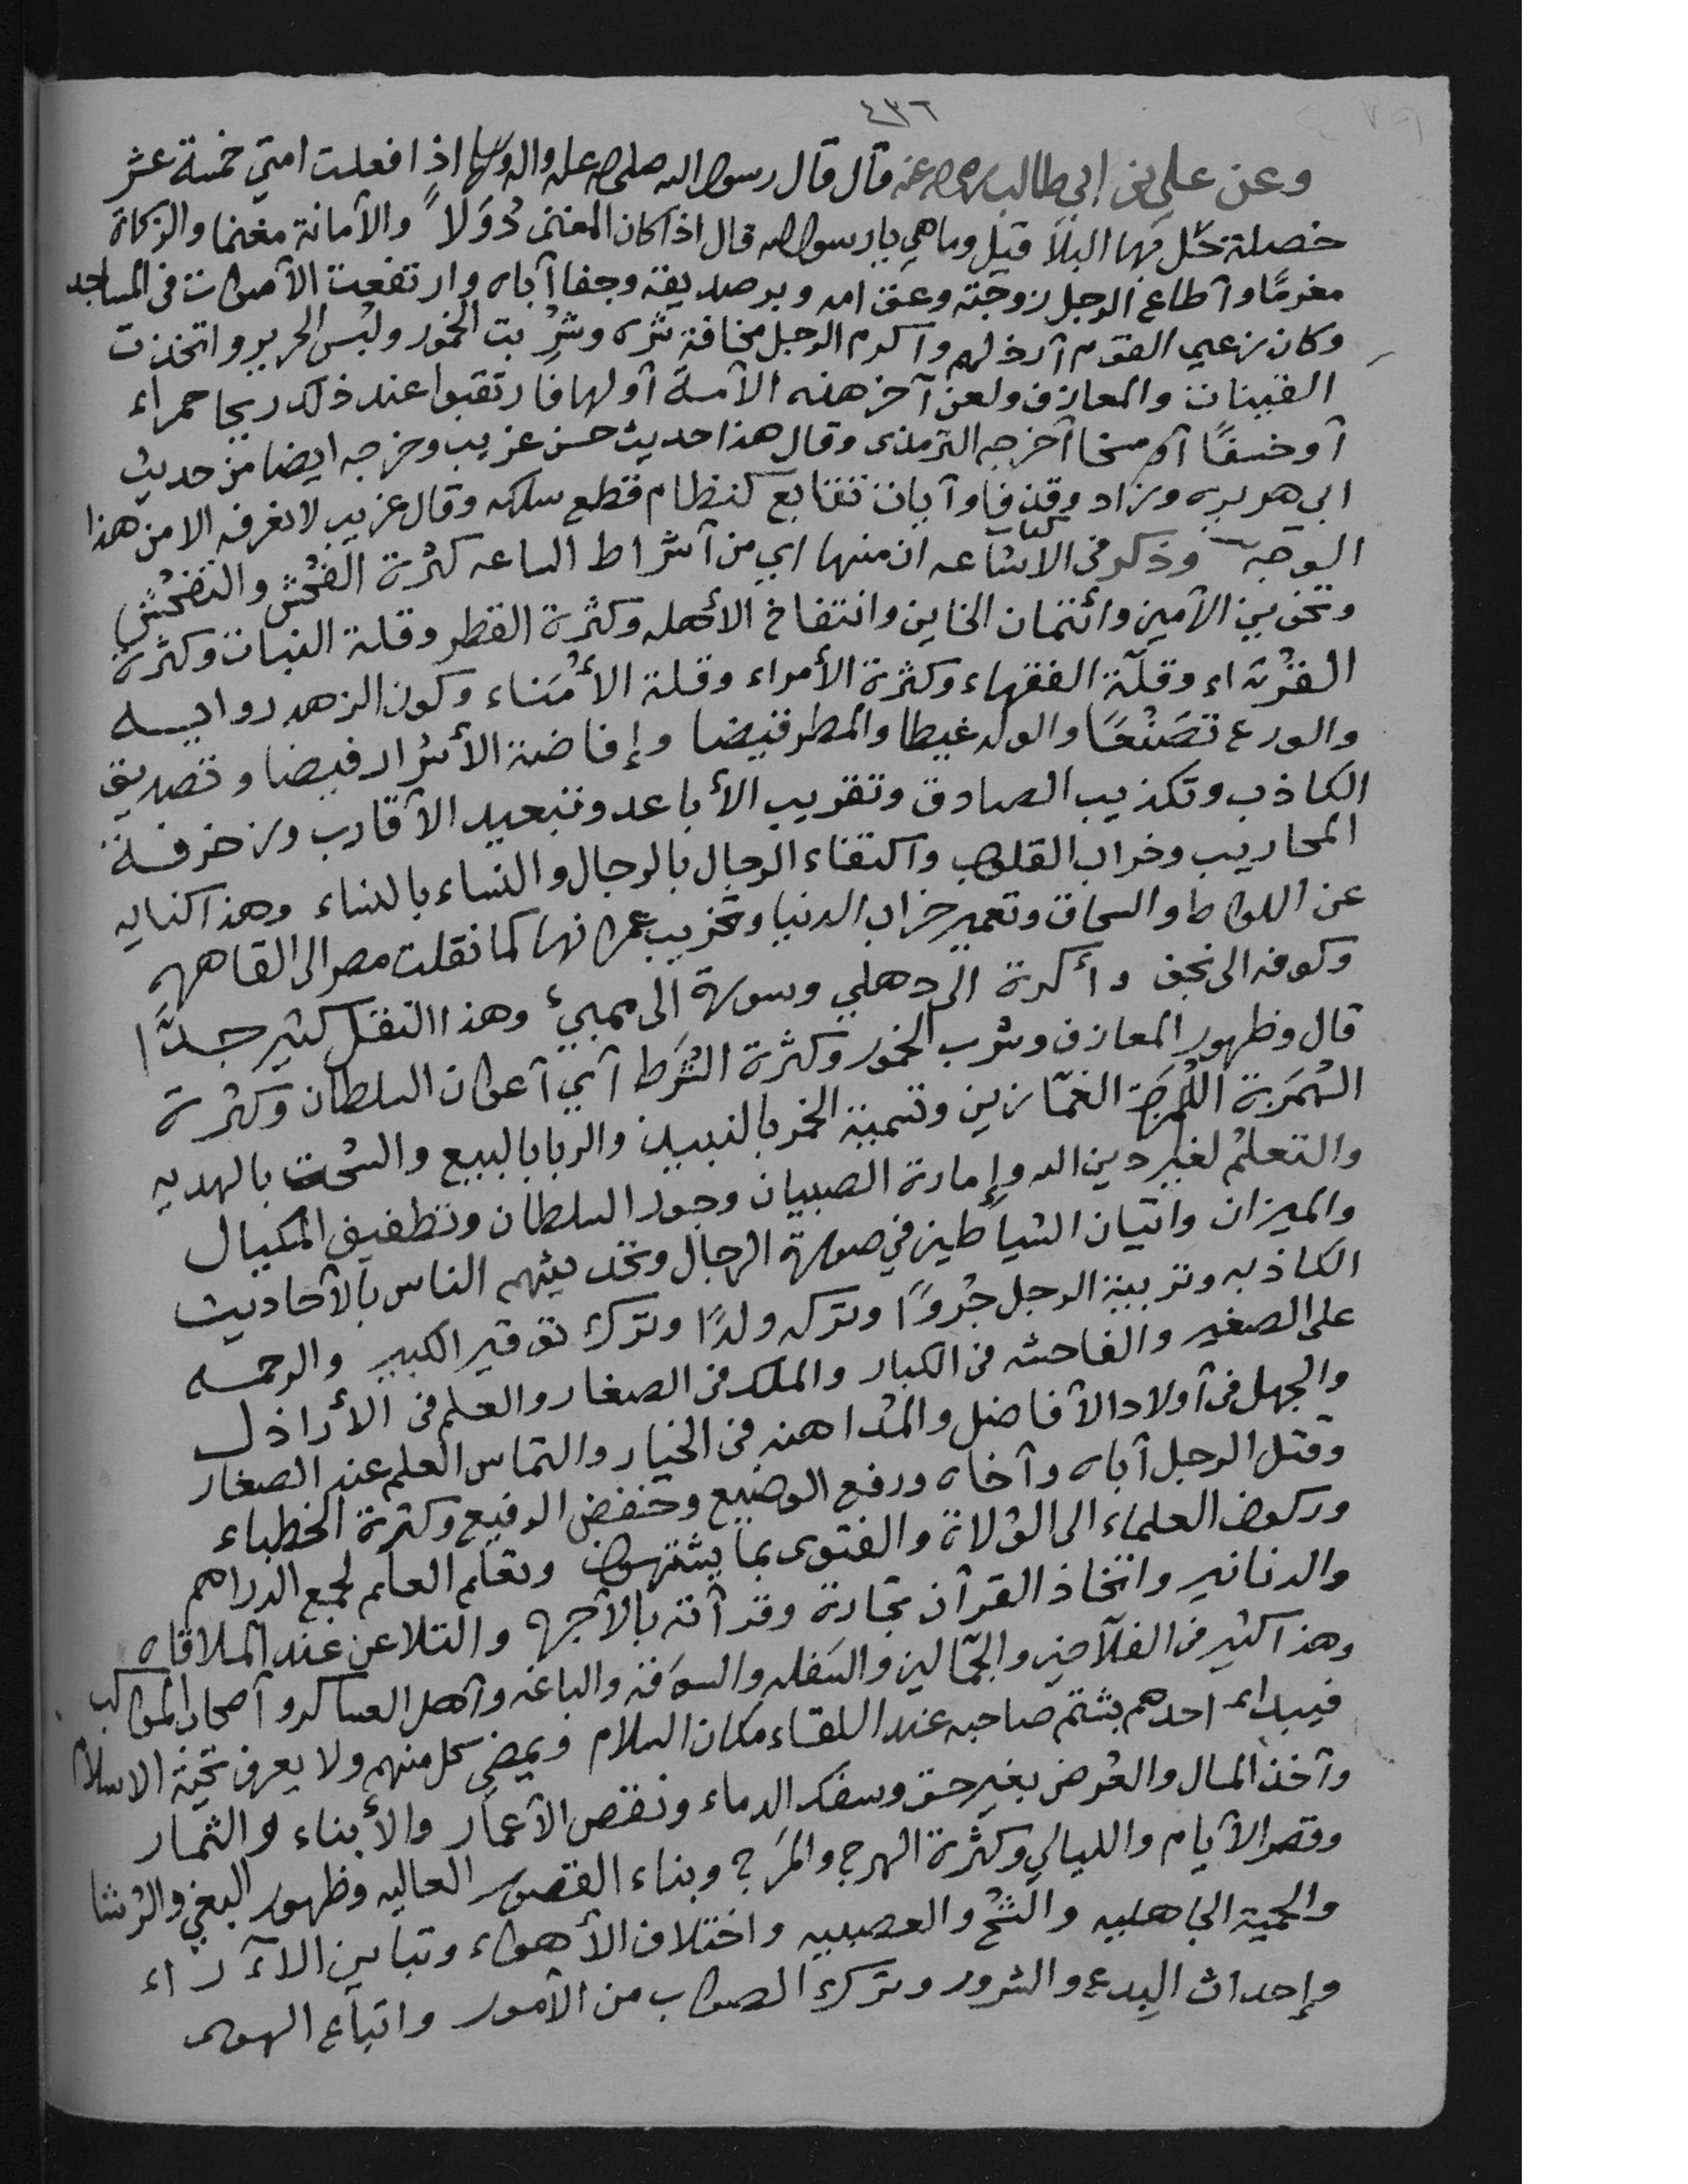 ٤٣٦
وعن علي بن ابي طالب رضي الله عنه قال قال رسول الله صلى الله عليه واله وسلم اذا فعلت امتي خمسة عشر
خصلة حل بها البلا قيل وما هي يا رسول الله قال اذا كان المغنم دُوَلاً والأمانة مغنما والزكاة
مغرمًا وأطاع الرجل زوجته وعق امه وبر صديقه وجفا أباه وارتفعت الأصوات في المساجد
وكان زعيم القوم أرذلهم وأكرم الرجل مخافة شره وشُرِبت الخمور ولُبس الحرير واتخذت
القينات والمعازف ولعن آخر هذه الأمة أولها فارتقبوا عند ذلك ريحا حمراء
أو خسفًا أو مسخا أخرجه الترمذى وقال هذا حديث حسن غريب وخرجه ايضا من حديث
ابي هريره وزاد وقذفا وآيات تتابع كنظام قطع سلكه وقال غريب لا نعرفه الا من هذا
الوجه وذكر فى الاشاعه ان منها اي من أشراط الساعه كثرة الفُحش والتفحُّش
وتخوين الأمين وأئتمان الخاين وانتفاخ الأهله وكثرة القطر وقلة النبات وكثرة
القُرّاء وقلّة الفقهاء وكثرة الأمراء وقلة الأُمَناء وكون الزهد روايـــه
والورع تَصَنُّعًا والولد غيظا والمطر قيضا وإفاضة الأشرار فيضا وتصديق
الكاذب وتكذيب الصادق وتقريب الأباعد وتبعيد الأقارب وزخرفـــة
المحاريب وخراب القلوب واكتفاء الرجال بالرجال والنساء بالنساء وهذا كنايه
عن اللواط والسحاق وتعمير خراب الدنيا وتخريب عمرانها كما نقلت مصر الى القاهره
وكوفه الى نجف وأكرة الى دهلي وسورة الى ممبيء وهذا النقل كثير جـــدًّا
قال وظهور المعازف وشرب الخمور وكثرة الشُّرَط أي أعوان السلطان وكثرة
الهُمَزة اللُّمَزة الغمّازين وتسمية الخمر بالنبيذ والربا بالبيع والسُّحت بالهديه
والتعلم لغير دين الله وإمارة الصبيان وجور السلطان وتطفيف المكيال
والميزان واتيان الشياطين في صورة الرجال وتحديثهم الناس بالأحاديث
الكاذبه وتربية الرجل جُروًا وتركه ولدًا وترك توقير الكبير والرحمـــه
على الصغير والفاحشه فى الكبار والملك فى الصغار والعلم فى الأراذل
والجهل فى أولاد الأفاضل والمُداهنه فى الخيار والتماس العلم عند الصغار
وقتل الرجل أباه وأخاه ورفع الوضيع وخفض الرفيع وكثرة الخطباء
وركون العلماء الى الوُلاة والفتوى بما يشتهون وتعلم العلم لجمع الدراهم
والدنانير واتخاذ القرآن تجارة وقرآته بالأجره والتلاعن عند الملاقاه
وهذا كثير فى الفلّاحين والجمّالين والسَفله والسُوقه والباعه وأهل العساكر وأصحاب المواكب
فيبدأ احدهم بشتم صاحبه عند اللقاء مكان السلام ويمضي كل منهم ولا يعرف تحيّة الاسلام
وأخذ المال والعُرض بغير حق وسفك الدماء ونقص الأعمار والأبناء والثمار
وقصر الأيام والليالي وكثرة الهرج والمَرج وبناء القصور العاليه وظهور البغي والرُشا
والحمية الجاهليه والشُحّ والعصبيه واختلاف الأهواء وتباين الآراء
وإحداث البدع والشرور وترك الصواب من الأمور واتباع الهوى